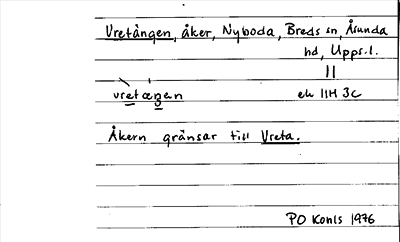 Vretängen, åker, Nyboda, Breds sn, Åsunda
hd, Upps.l.
||
vretæŋen
ek 11H 3c
Åkern gränsar till Vreta.
PO Konls 1976